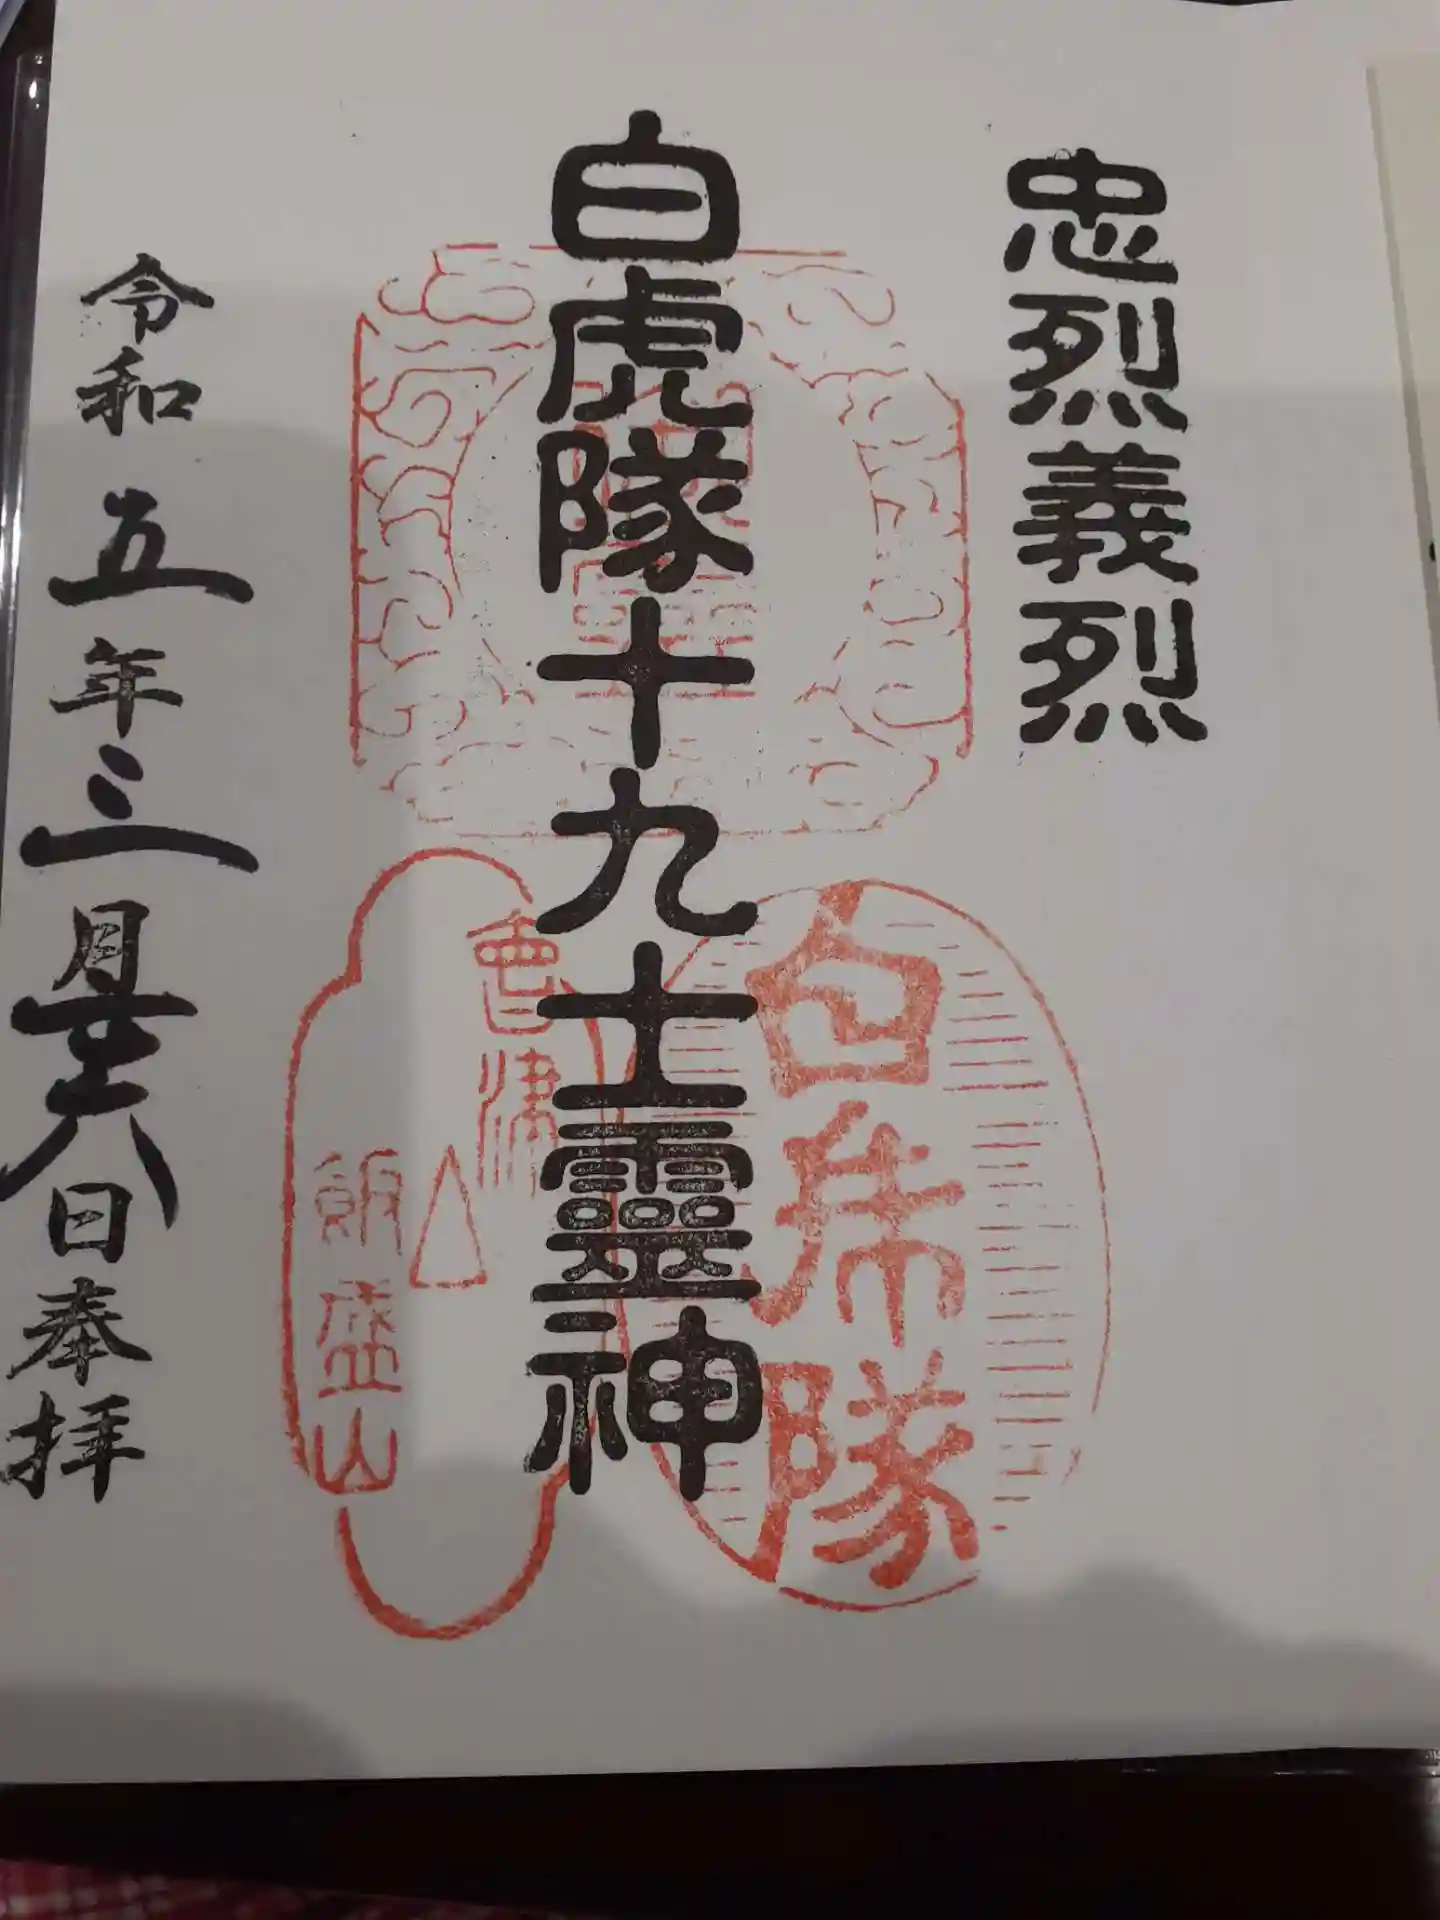 忠烈義烈
白虎隊十九士靈神
白虎隊
會津
飯盛山
令和五年三月廿六日奉拝